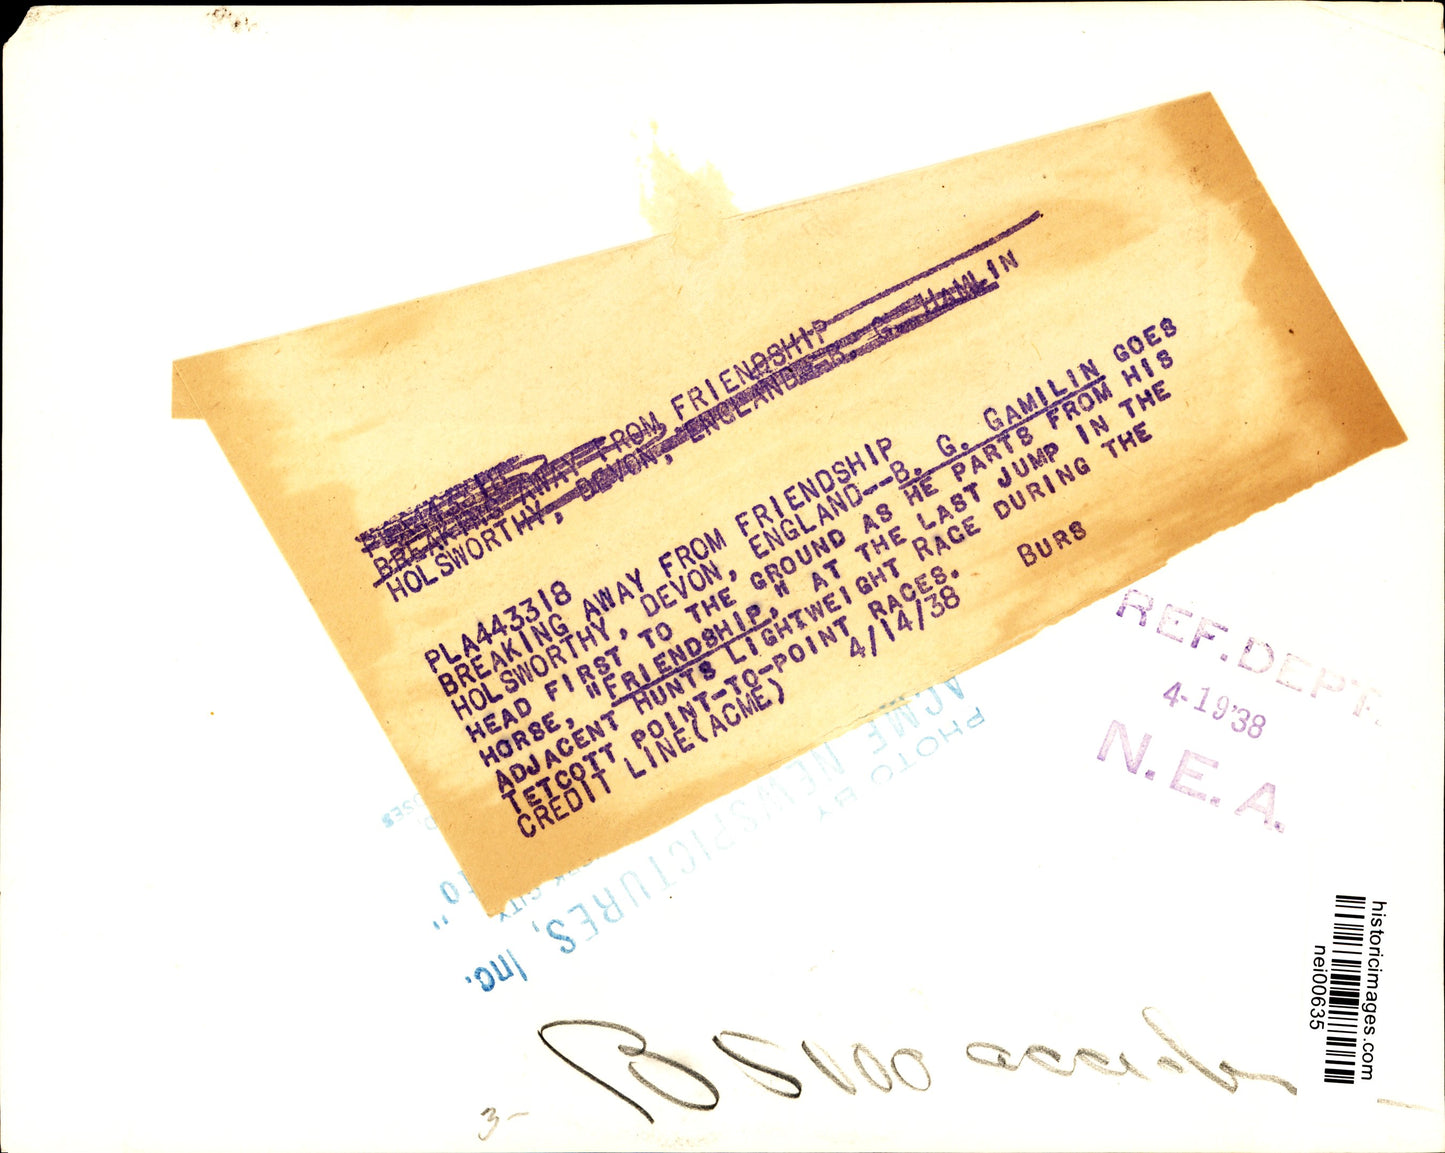 BREAKING AWAY FROM FRIENDSHIP
HOLSWORTHY, DEVON, ENGLAND--B. G. HAMLIN
PLA443318
BREAKING AWAY FROM FRIENDSHIP
HOLSWORTHY, DEVON, ENGLAND--B. G. GAMILIN GOES
HEAD FIRST TO THE GROUND AS HE PARTS FROM HIS
HORSE, "FRIENDSHIP," AT THE LAST JUMP IN THE
ADJACENT HUNTS LIGHTWEIGHT RACE DURING THE
TETCOTT POINT-TO-POINT RACES.
CREDIT LINE(ACME) 4/14/38 BURS
REF. DEPT.
4-19'38
N.E.A.
PHOTO BY
ACME NEWSPICTURES, Inc.
CITY
historicimages.com
nei00635
3-